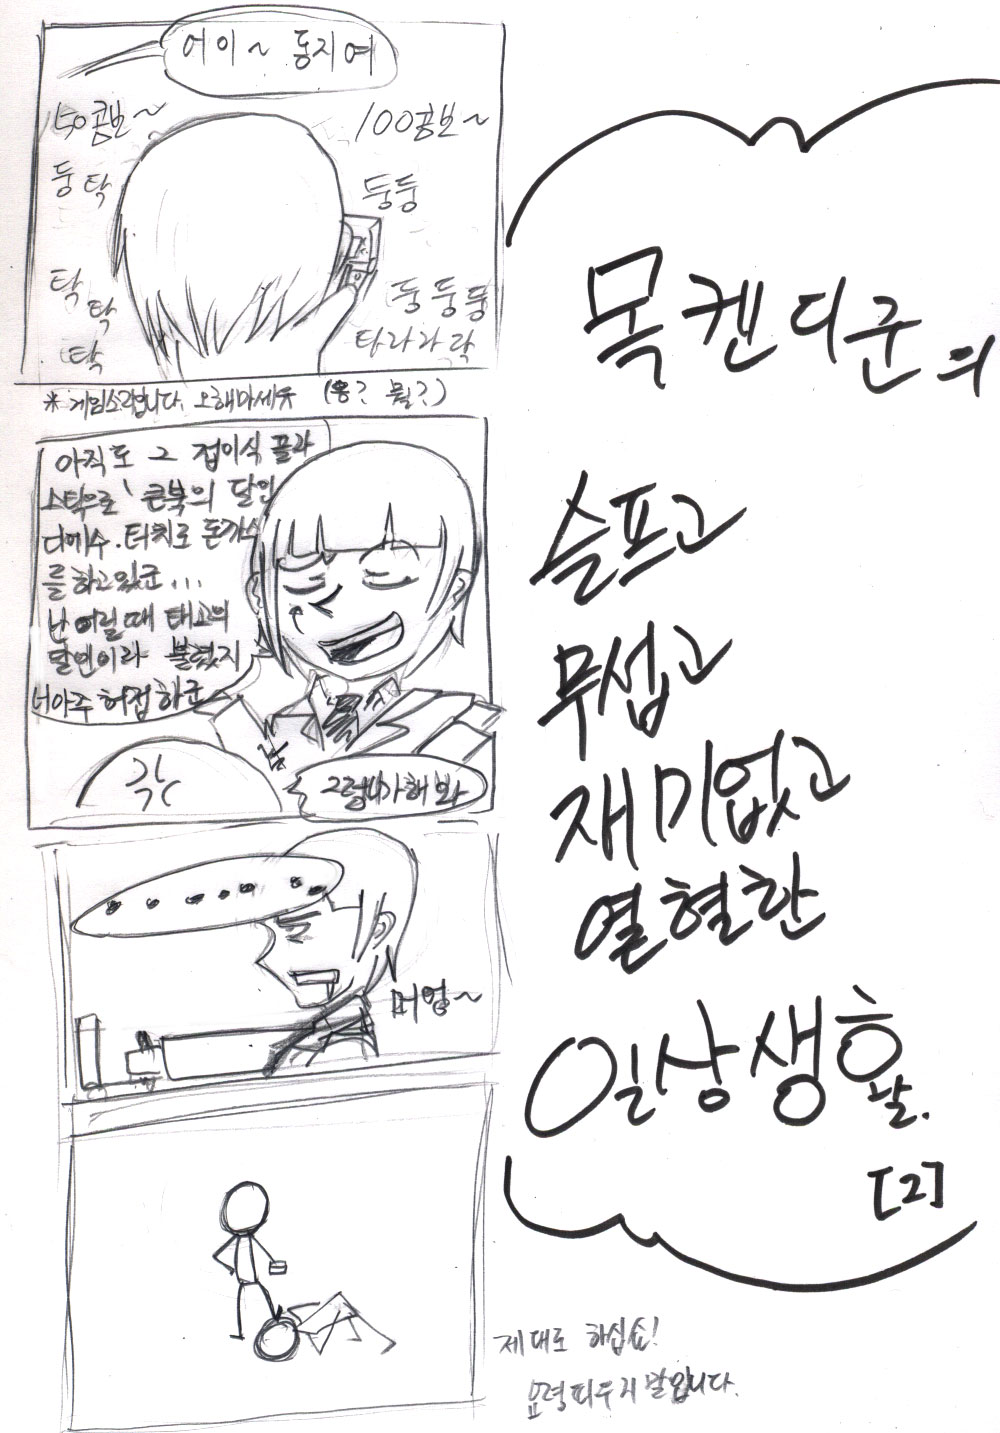 어이~ 동지여
50콤보~
100콤보~
둥 탁
둥둥
탁
탁
탁
둥둥둥
타라라락
* 게임소리입니다. 오해마세유 (응? 뭘?)
아직도 그 접이식 플라
스틱으로 큰북의 달인
디에수.터치로 돈까스
를하고있군...
난 어릴때 태고의
달인이라 불렸지
너아주 허접하군
각
그럼니가해봐
......
머엉~
목켄디군의
슬프고
무섭고
재미없고
열혈한
일상생활.
[2]
제대로 하십쇼!
요령피우지 말입니다.